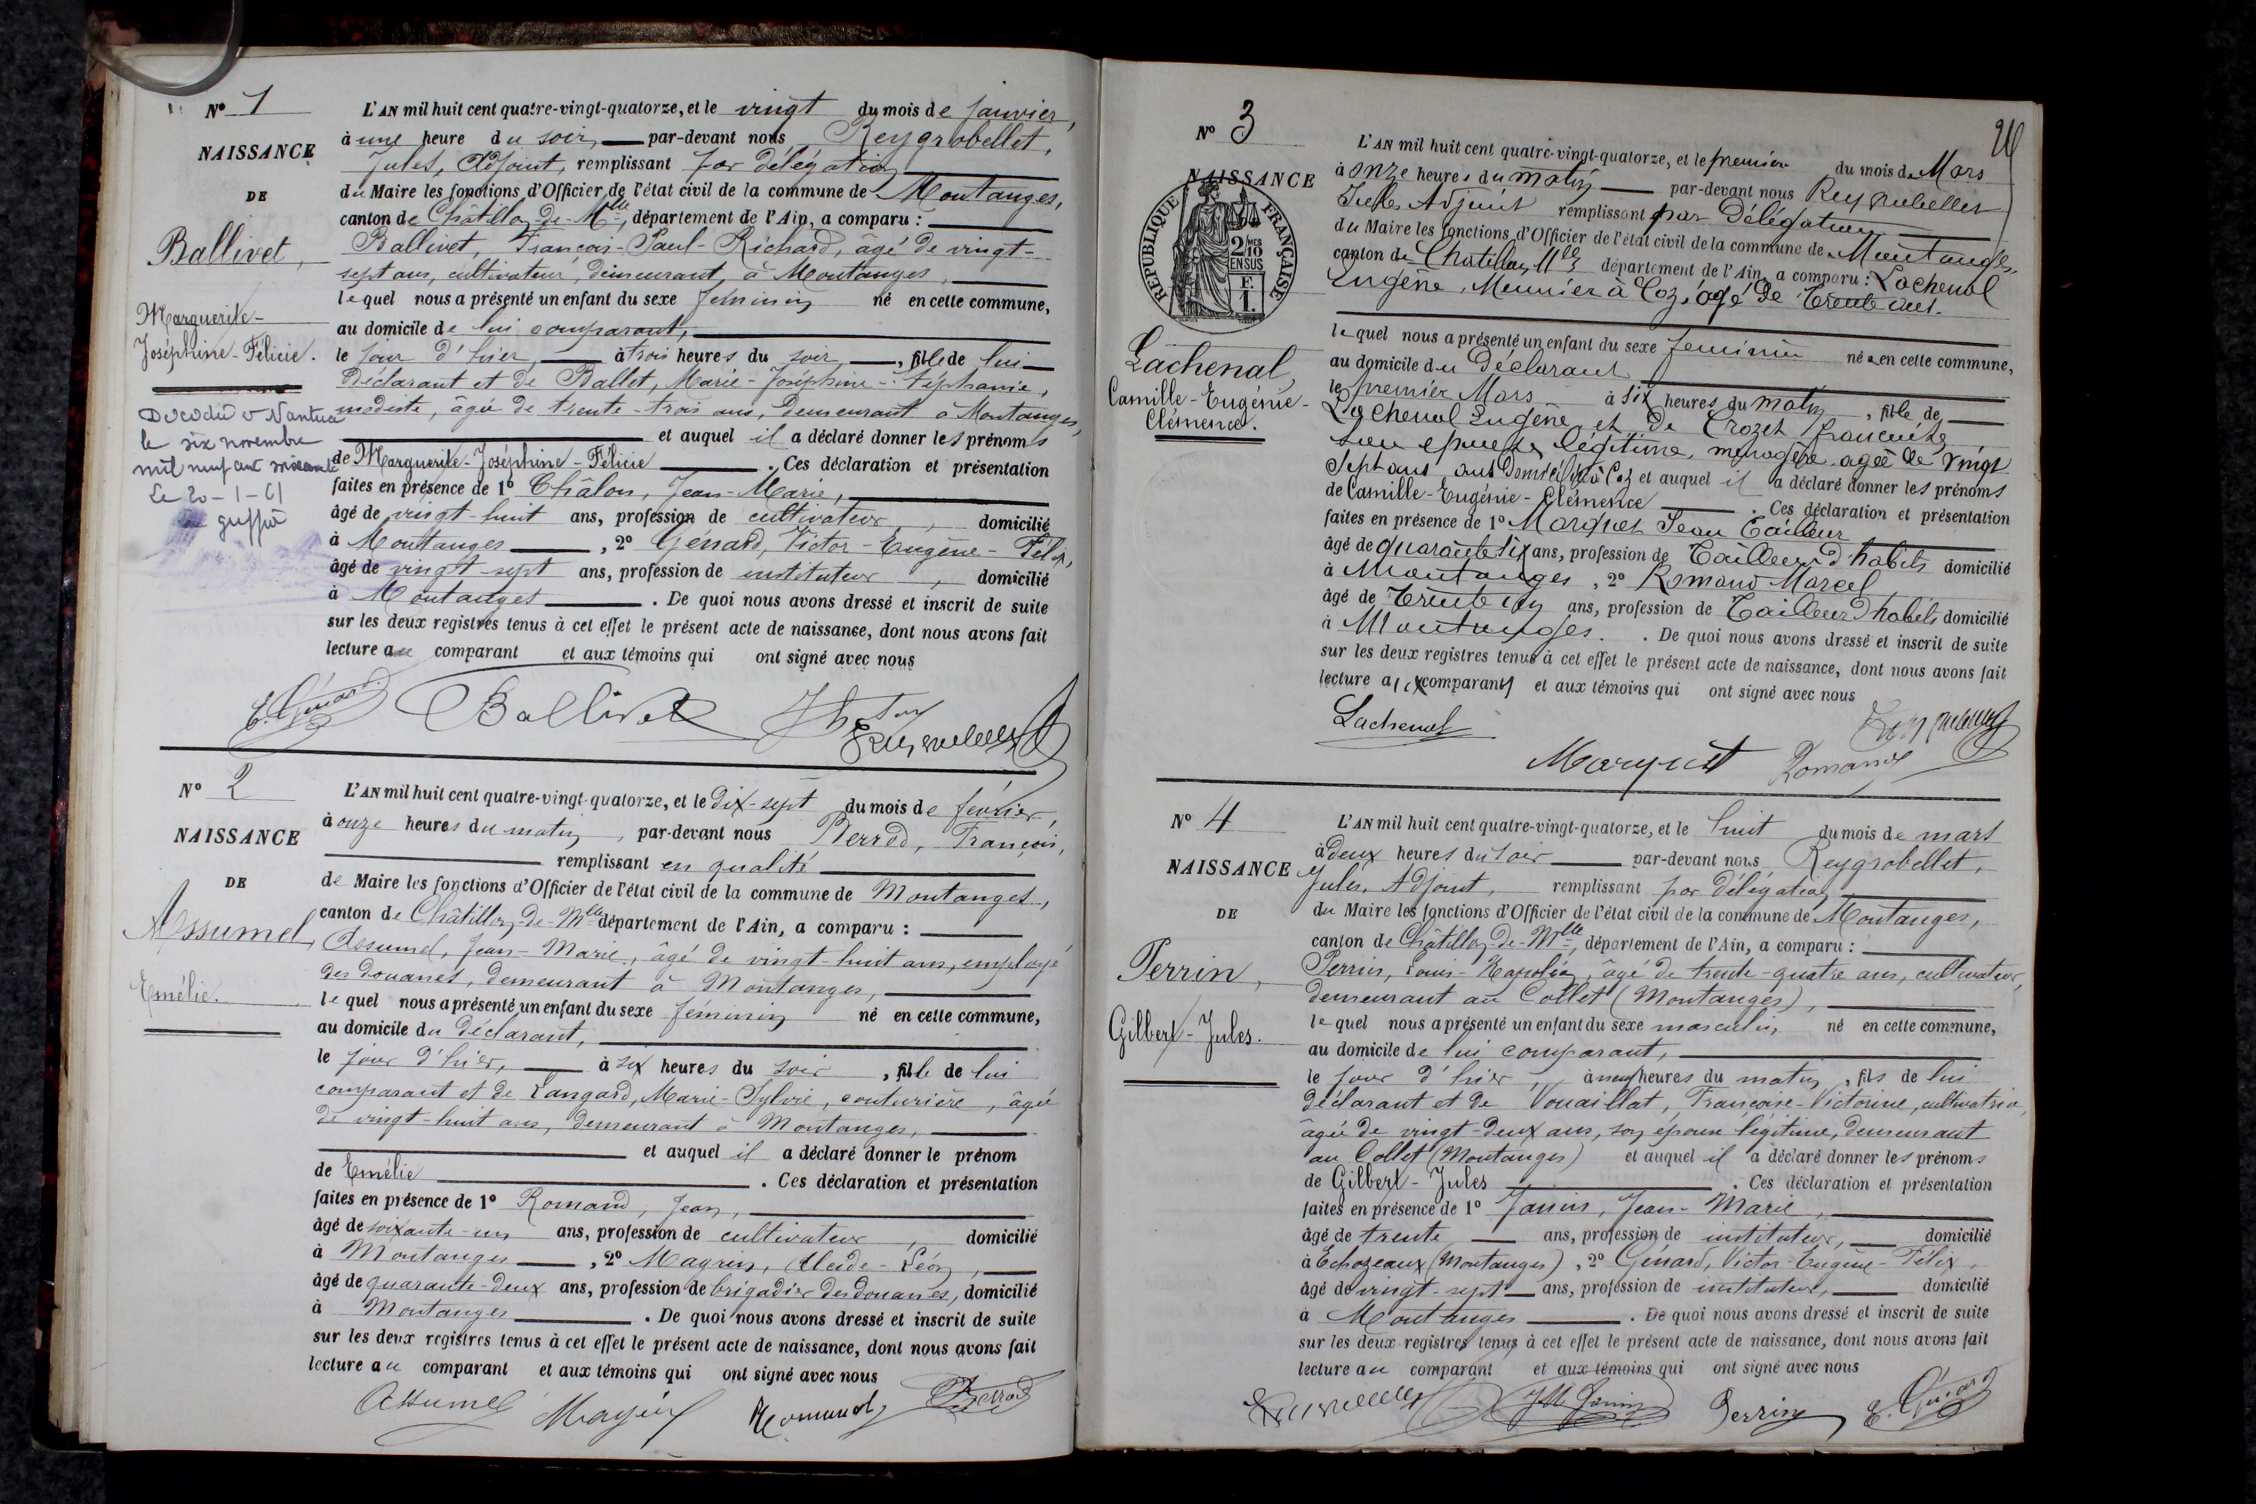 Nº 1
NAISSANCE
DE
Ballivet,
Marguerite-
Joséphine-Félicie.
Décédée à Nantua
le six novembre
mil neuf cent soixante
Le 20-1-61
Le greffier
L'AN mil huit cent quatre-vingt-quatorze, et le vingt du mois de janvier,
à une heure du soir, par-devant nous Reygrobellet,
Jules, Adjoint, remplissant par délégation
du Maire les fonctions d'Officier de l'état civil de la commune de Montanges,
canton de Châtillon-de-Mlle, département de l'Ain, a comparu :
Ballivet, François-Paul-Richard, âgé de vingt-
sept ans, cultivateur, demeurant à Montanges,
lequel nous a présenté un enfant du sexe féminin né en cette commune,
au domicile de lui comparant,
le jour d'hier, à trois heures du soir, fille de lui
déclarant et de Ballet, Marie-Joséphine-Stéphanie,
modiste, âgée de trente-trois ans, demeurant à Montanges,
et auquel il a déclaré donner les prénoms
de Marguerite-Joséphine-Félicie. Ces déclaration et présentation
faites en présence de 1º Châlon, Jean-Marie,
âgé de vingt-huit ans, profession de cultivateur, domicilié
à Montanges, 2º Génard, Victor-Eugène-Félix,
âgé de vingt-sept ans, profession de instituteur, domicilié
à Montanges. De quoi nous avons dressé et inscrit de suite
sur les deux registres tenus à cet effet le présent acte de naissance, dont nous avons fait
lecture au comparant et aux témoins qui ont signé avec nous
E. Génard Ballivet
Nº 2
NAISSANCE
DE
Assumel,
Emélie.
L'AN mil huit cent quatre-vingt-quatorze, et le dix-sept du mois de février,
à onze heures du matin, par-devant nous Berrod, François,
remplissant en qualité
de Maire les fonctions d'Officier de l'état civil de la commune de Montanges,
canton de Châtillon-de-Mlle département de l'Ain, a comparu :
Assumel, Jean-Marie, âgé de vingt-huit ans, employé
des douanes, demeurant à Montanges,
lequel nous a présenté un enfant du sexe féminin né en cette commune,
au domicile du déclarant,
le jour d'hier, à six heures du soir, fille de lui
comparant et de Langard, Marie-Sylvie, couturière, âgée
de vingt-huit ans, demeurant à Montanges,
et auquel il a déclaré donner le prénom
de Emélie. Ces déclaration et présentation
faites en présence de 1º Romand, Jean,
âgé de soixante-un ans, profession de cultivateur, domicilié
à Montanges, 2º Magnin, Alcide-Léon,
âgé de quarante-deux ans, profession de brigadier des douanes, domicilié
à Montanges. De quoi nous avons dressé et inscrit de suite
sur les deux registres tenus à cet effet le présent acte de naissance, dont nous avons fait
lecture au comparant et aux témoins qui ont signé avec nous
Assumel Magnin Romand Berrod
Nº 3
NAISSANCE
RÉPUBLIQUE FRANÇAISE
2/10 MES
EN SUS
F.
1.
Lachenal,
Camille-Eugénie-
Clémence.
L'AN mil huit cent quatre-vingt-quatorze, et le premier du mois de Mars
à onze heures du matin par-devant nous Reygrobellet
Jules Adjoint remplissant par Délégation
du Maire les fonctions d'Officier de l'état civil de la commune de Montanges,
canton de Chatillon Mlle département de l'Ain, a comparu : Lachenal
Eugène, Meunier à Coz, âgé de trente ans.
lequel nous a présenté un enfant du sexe feminin née en cette commune,
au domicile du Déclarant
le premier Mars à six heures du matin, fille de
Lachenal Eugène et de Crozet françoise
son epouse légitime, menagère, agée de vingt
Sept ans aus Domiciliés à Coz et auquel il a déclaré donner les prénoms
de Camille-Eugénie-Clémence. Ces déclaration et présentation
faites en présence de 1º Marquet Jean Tailleur
âgé de quarante six ans, profession de Tailleur d'habits domicilié
à Montanges, 2º Romand Marcel
âgé de trente ans, profession de Tailleur d'habits domicilié
à Montanges. De quoi nous avons dressé et inscrit de suite
sur les deux registres tenus à cet effet le présent acte de naissance, dont nous avons fait
lecture aux comparants et aux témoins qui ont signé avec nous
Lachenal Marquet Romand
Nº 4
NAISSANCE
DE
Perrin,
Gilbert-Jules.
L'AN mil huit cent quatre-vingt-quatorze, et le huit du mois de mars
à deux heures du soir par-devant nous Reygrobellet,
Jules, Adjoint, remplissant par délégation
du Maire les fonctions d'Officier de l'état civil de la commune de Montanges,
canton de Châtillon-de-Mlle, département de l'Ain, a comparu :
Perrin, Louis-Napoléon, âgé de trente-quatre ans, cultivateur,
demeurant au Collet (Montanges),
lequel nous a présenté un enfant du sexe masculin, né en cette commune,
au domicile de lui comparant,
le jour d'hier, à neuf heures du matin, fils de lui
déclarant et de Vouaillat, Françoise-Victorine, cultivatrice,
âgée de vingt-deux ans, son épouse légitime, demeurant
au Collet (Montanges) et auquel il a déclaré donner les prénoms
de Gilbert-Jules. Ces déclaration et présentation
faites en présence de 1º Janin, Jean-Marie,
âgé de trente ans, profession de instituteur, domicilié
à Echazeaux (Montanges), 2º Génard, Victor-Eugène-Félix,
âgé de vingt-sept ans, profession de instituteur, domicilié
à Montanges. De quoi nous avons dressé et inscrit de suite
sur les deux registres tenus à cet effet le présent acte de naissance, dont nous avons fait
lecture au comparant et aux témoins qui ont signé avec nous
JM Janin Perrin E. Génard